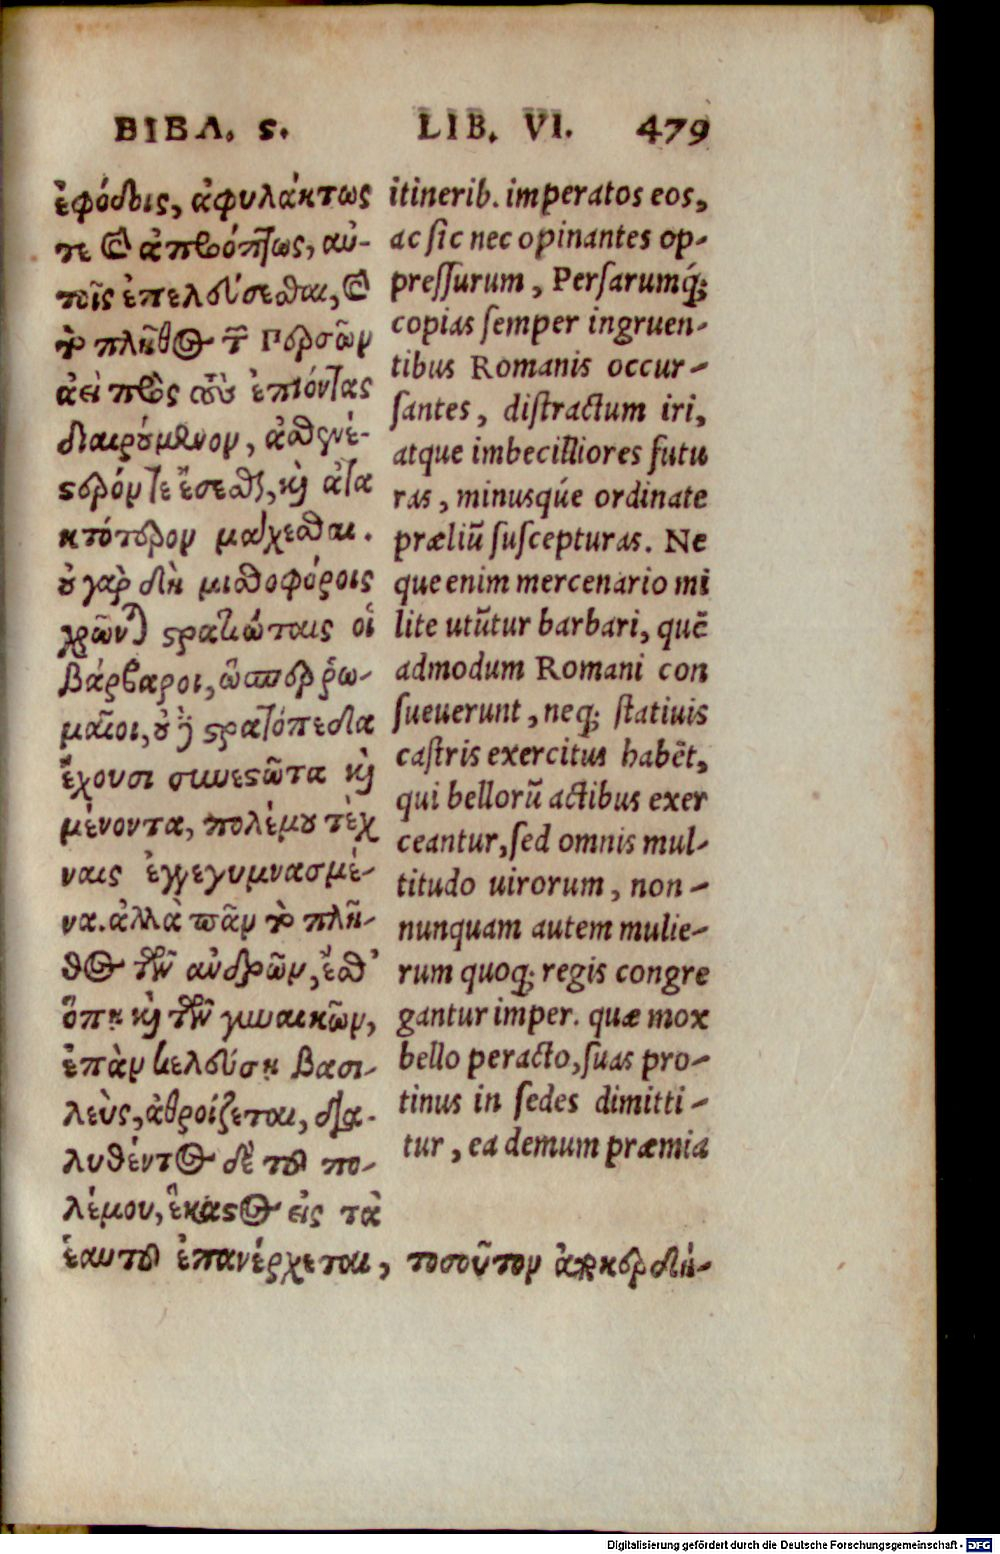 ΒΙΒΛ. ϛ. LIB. VI. 479
ἐφόδοις, ἀφυλάκτως
τε καὶ ἀπροόπτως, αὐ-
τοῖς ἐπελεύσεσθαι, καὶ
τὸ πλῆθος τῶν Περσῶν
ἀεὶ πρὸς τοὺς ἐπιόντας
διαιρούμενον, ἀσθενέ-
στερόν τε ἔσεσθαι, καὶ ἀτα
κτότερον μάχεσθαι.
οὐ γὰρ δὴ μισθοφόροις
χρῶνται στρατιώταις οἱ
βάρβαροι, ὥσπερ ῥω-
μαῖοι, οὐδὲ στρατόπεδα
ἔχουσι συνεστῶτα καὶ
μένοντα, πολέμου τέχ
ναις ἐγγεγυμνασμέ-
να. ἀλλὰ πᾶν τὸ πλῆ-
θος τῶν ἀνδρῶν, ἔσθ'
ὅπη καὶ τῶν γυναικῶν,
ἐπὰν κελεύσῃ βασι-
λεὺς, ἀθροίζεται, δια-
λυθέντος δὲ τοῦ πο-
λέμου, ἕκαστος εἰς τὰ
ἑαυτοῦ ἐπανέρχεται, τοσοῦτον ἀποκερδή-
itinerib. imperatos eos,
ac sic nec opinantes op-
pressurum, Persarumq́;
copias semper ingruen-
tibus Romanis occur-
santes, distractum iri,
atque imbecilliores futu
ras, minusqúe ordinate
præliũ suscepturas. Ne
que enim mercenario mi
lite utũtur barbari, quẽ
admodum Romani con
sueuerunt, neq; statiuis
castris exercitus habẽt,
qui bellorũ actibus exer
ceantur, sed omnis mul-
titudo uirorum, non-
nunquam autem mulie-
rum quoq; regis congre
gantur imper. quæ mox
bello peracto, suas pro-
tinus in sedes dimitti-
tur, ea demum præmia
Digitalisierung gefördert durch die Deutsche Forschungsgemeinschaft - DFG